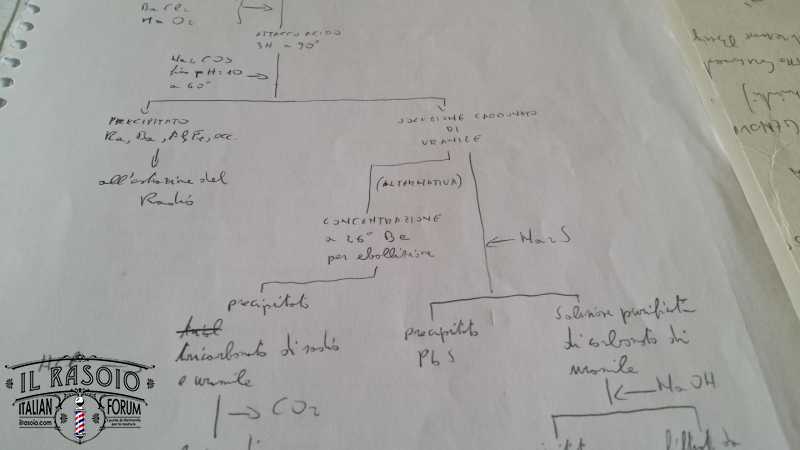 BaCl2
MnO2
ATTACCO ACIDO
3H ~ 90°
Na2CO3
fino pH=10
a 60°
PRECIPITATO
Ra, Ba, Al, Fe, ecc.
all'estrazione del
Radio
SOLUZIONE CARBONATO
DI
URANILE
(ALTERNATIVA)
CONCENTRAZIONE
a 26° Be
per ebollizione
Na2S
precipitato
tricarbonato di sodio
e uranile
CO2
precipitato
PbS
Soluzione purificata
di carbonato di
uranile
NaOH
IL RASOIO
ITALIAN FORUM
ilrasoio.com
il punto di riferimento
per la rasatura